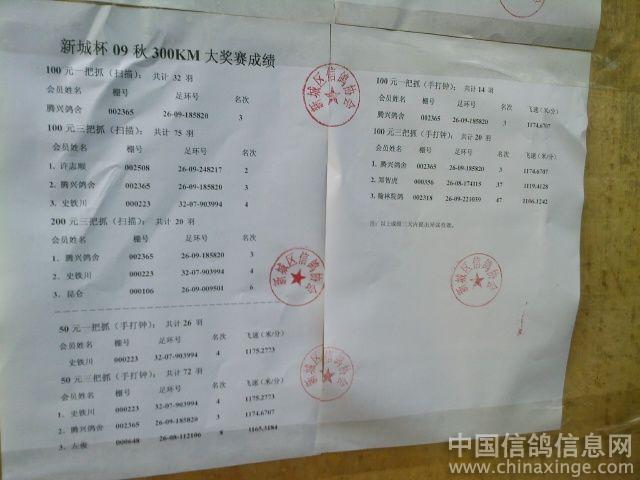 新城杯 09 秋 300KM 大奖赛成绩
100 元一把抓（扫描）： 共计 32 羽
会员姓名 棚号 足环号 名次
腾兴鸽舍 002365 26-09-185820 3
100 元三把抓（扫描）： 共计 75 羽
会员姓名 棚号 足环号 名次
1．许志顺 002508 26-09-248217 2
2．腾兴鸽舍 002365 26-09-185820 3
3．史铁川 000223 32-07-903994 4
200 元三把抓（扫描）： 共计 20 羽
会员姓名 棚号 足环号 名次
1．腾兴鸽舍 002365 26-09-185820 3
2．史铁川 000223 32-07-903994 4
3．昆仑 000106 26-09-009501 6
50 元一把抓（手打钟）： 共计 26 羽
会员姓名 棚号 足环号 名次 飞速（米/分）
史铁川 000223 32-07-903994 4 1175.2773
50 元三把抓（手打钟）： 共计 72 羽
会员姓名 棚号 足环号 名次 飞速（米/分）
1．史铁川 000223 32-07-903994 4 1175.2773
2．腾兴鸽舍 002365 26-09-185820 3 1174.6707
3．左俊 000648 26-08-112106 8 1165.3184
100 元一把抓（手打钟）： 共计 14 羽
会员姓名 棚号 足环号 名次 飞速（米/分）
腾兴鸽舍 002365 26-09-185820 3 1174.6707
100 元三把抓（手打钟）： 共计 20 羽
会员姓名 棚号 足环号 名次 飞速（米/分）
1．腾兴鸽舍 002365 26-09-185820 3 1174.6707
2．郑智虎 000356 26-08-174115 37 1119.4128
3．翰林院鸽 002318 26-09-221039 47 1106.1242
注：以上成绩三天内提出异议有效。
新城区信鸽协会
新城区信鸽协会
新城区信鸽协会
新城区信鸽协会
中国信鸽信息网
www.chinaxinge.com